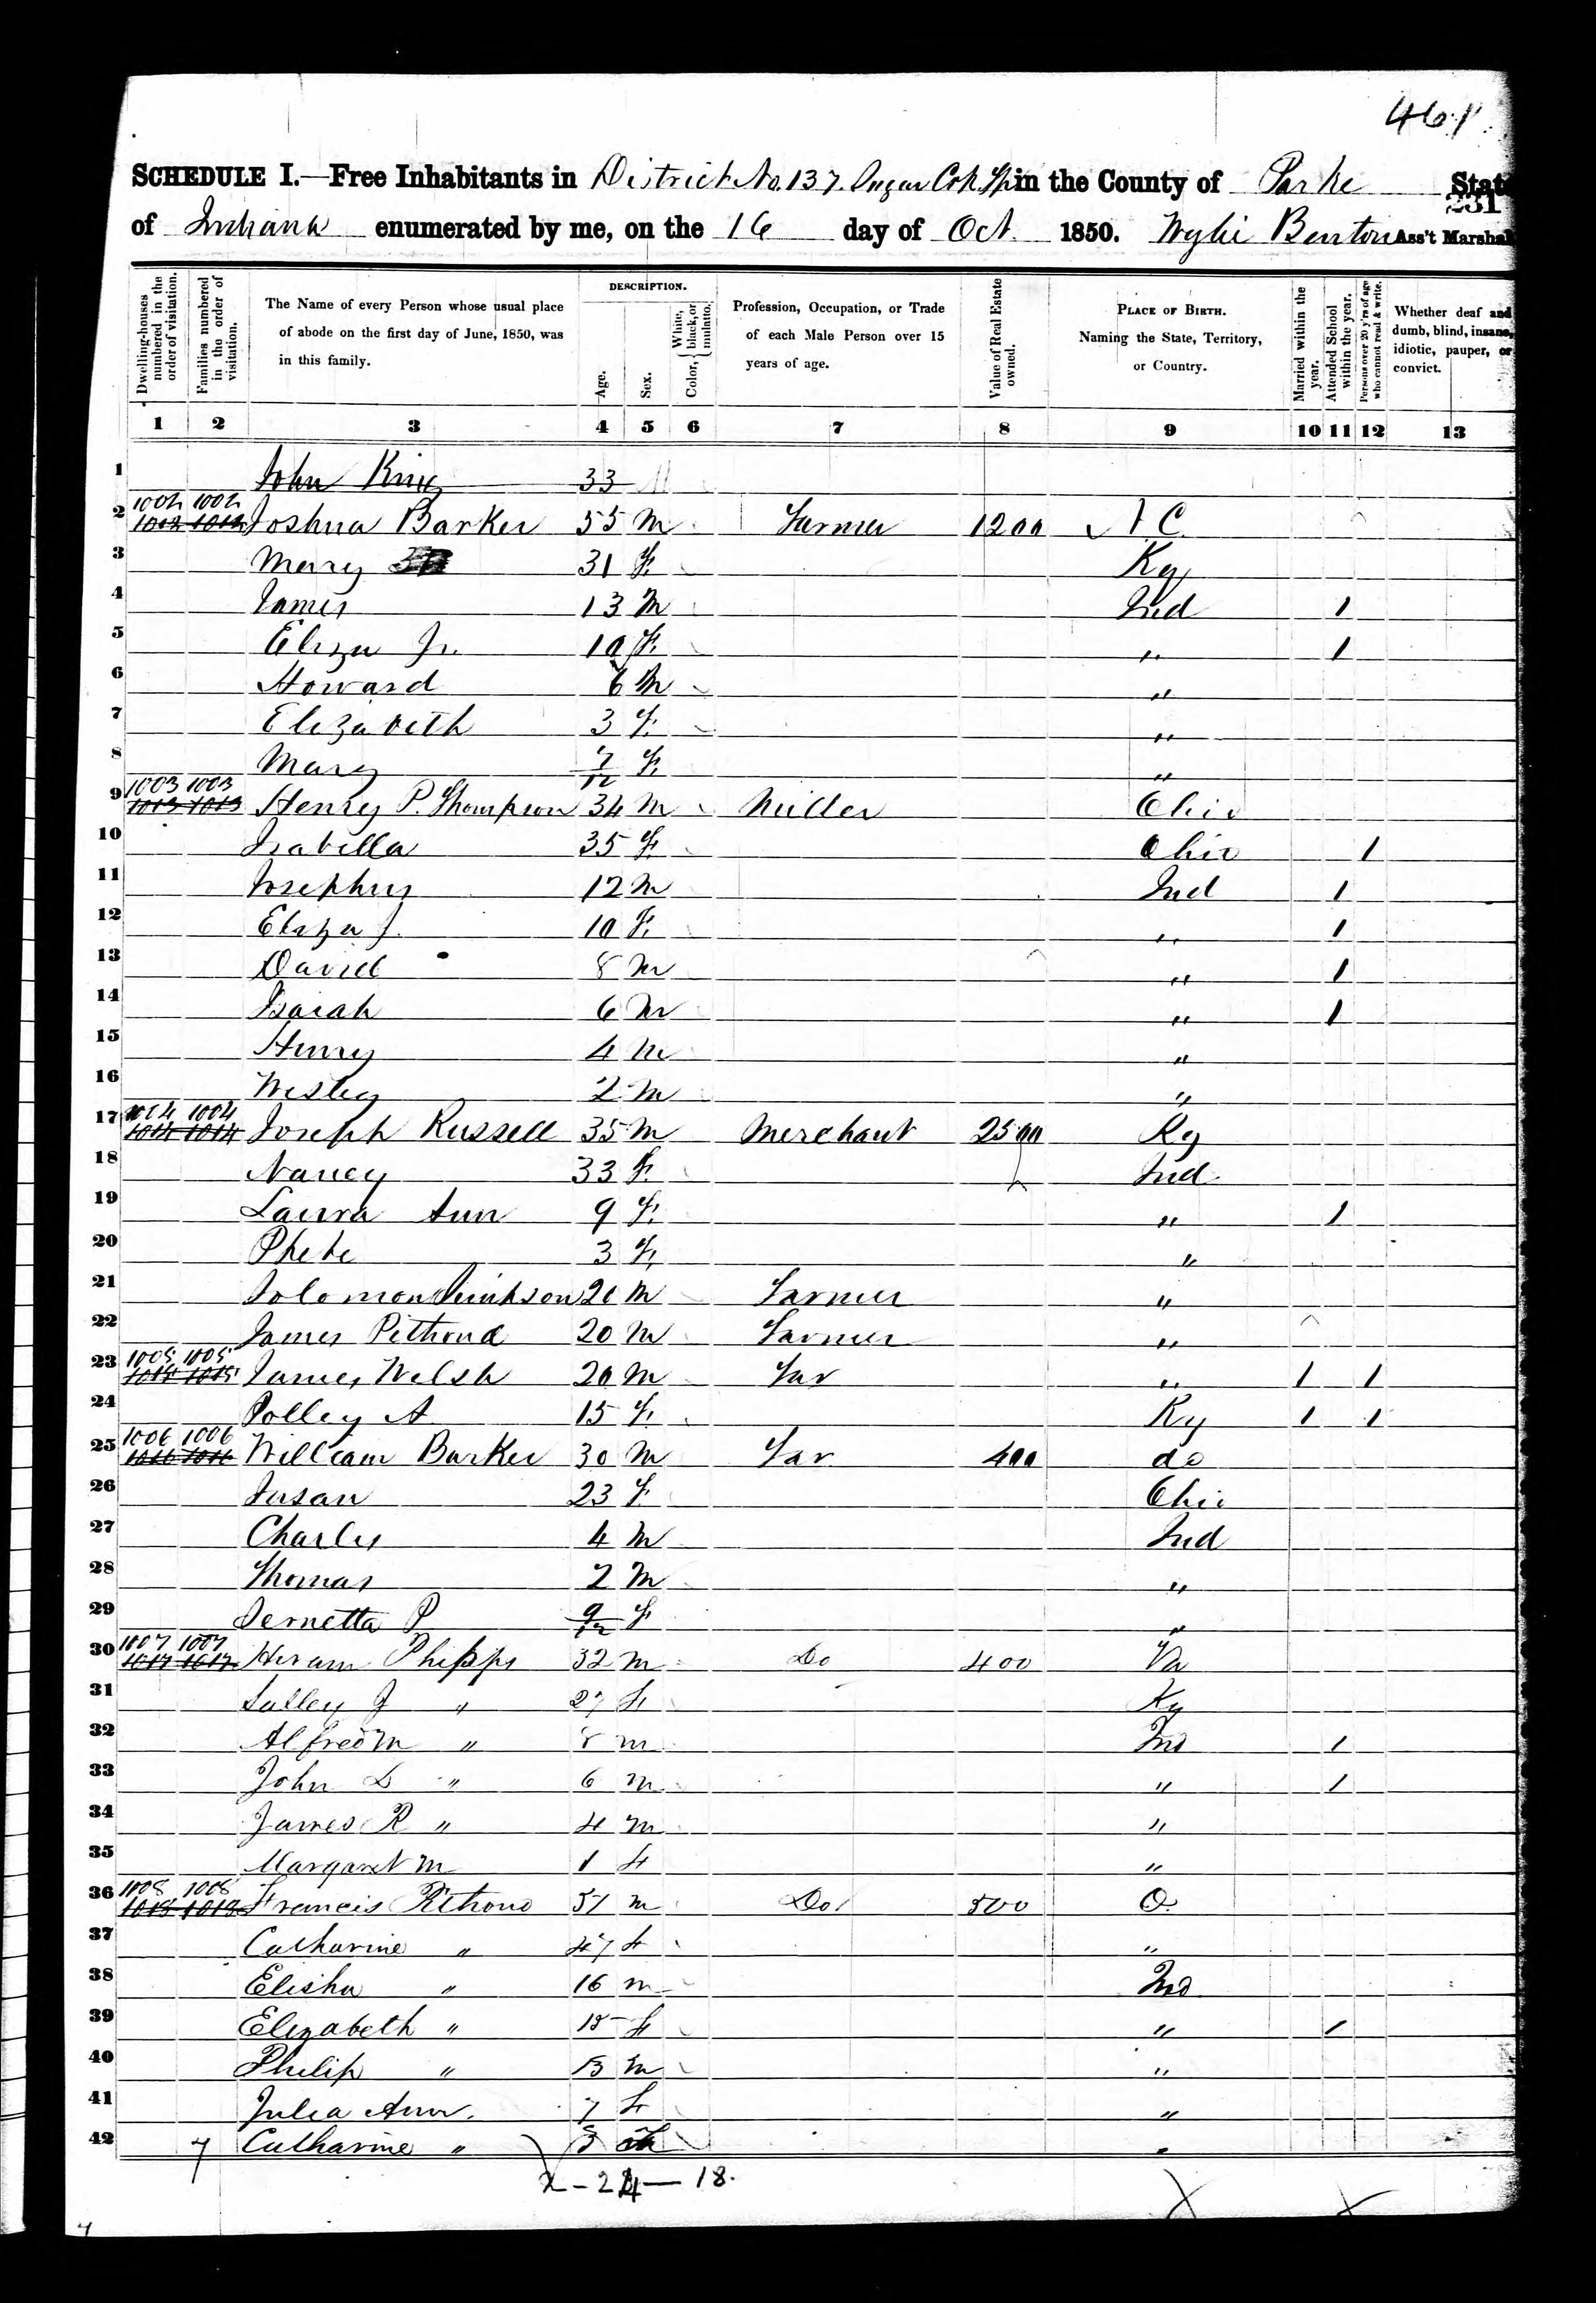 461
SCHEDULE I.—Free Inhabitants in District No. 137 Sugar Crk. Tp. in the County of Parke State
231
of Indiana enumerated by me, on the 16 day of Oct. 1850. Wylie Benton Ass't Marshal
Dwelling-houses numbered in the order of visitation.
Families numbered in the order of visitation.
The Name of every Person whose usual place of abode on the first day of June, 1850, was in this family.
DESCRIPTION.
Age.
Sex.
Color, { White, black, or mulatto.
Profession, Occupation, or Trade of each Male Person over 15 years of age.
Value of Real Estate owned.
PLACE OF BIRTH. Naming the State, Territory, or Country.
Married within the year.
Attended School within the year.
Persons over 20 y'rs of age who cannot read & write.
Whether deaf and dumb, blind, insane, idiotic, pauper, or convict.
1 2 3 4 5 6 7 8 9 10 11 12 13
1 John King 33 M
2 1002 1002 Joshua Barker 55 M Farmer 1200 N C
3 Mary 31 F. Ky
4 James 13 M Ind 1
5 Eliza Jr. 10 F. " 1
6 Howard 6 M "
7 Elizabeth 3 F. "
8 Mary 7/12 F. "
9 1003 1003 1013 1013 Henry P. Thompson 34 M Miller Ohio
10 Isabella 35 F. Ohio 1
11 Josephus 12 M Ind 1
12 Eliza J. 10 F. " 1
13 David 8 M " 1
14 Isaiah 6 M " 1
15 Henry 4 M "
16 Wesley 2 M "
17 1004 1004 1014 1014 Joseph Russell 35 M Merchant 2500 Ky
18 Nancy 33 F. Ind
19 Laura Ann 9 F. " 1
20 Phebe 3 F. "
21 Solomon 20 M Farmer "
22 James Pithoud 20 M Farmer "
23 1005 1005 1015 1015 James Welsh 20 M Far " 1 1
24 Polley A 15 F. Ky 1 1
25 1006 1006 1016 1016 William Barker 30 M Far 400 do
26 Susan 23 F Ohio
27 Charles 4 M Ind
28 Thomas 2 M "
29 P 9/12 F "
30 1007 1007 1017 1017 Hiram Phipps 32 M Do 400 Va
31 Salley J " 27 F Ky
32 Alfred M " 8 m Ind 1
33 John D " 6 m " 1
34 James R " 4 m "
35 Margaret M 1 F "
36 1008 1008 1018 1018 Francis Pithoud 51 m Do 500 O.
37 Catharine " 47 F "
38 Elisha " 16 m Ind
39 Elizabeth " 15 F " 1
40 Philip " 13 m "
41 Julia Ann. 7 F "
42 7 Catharine "
18.